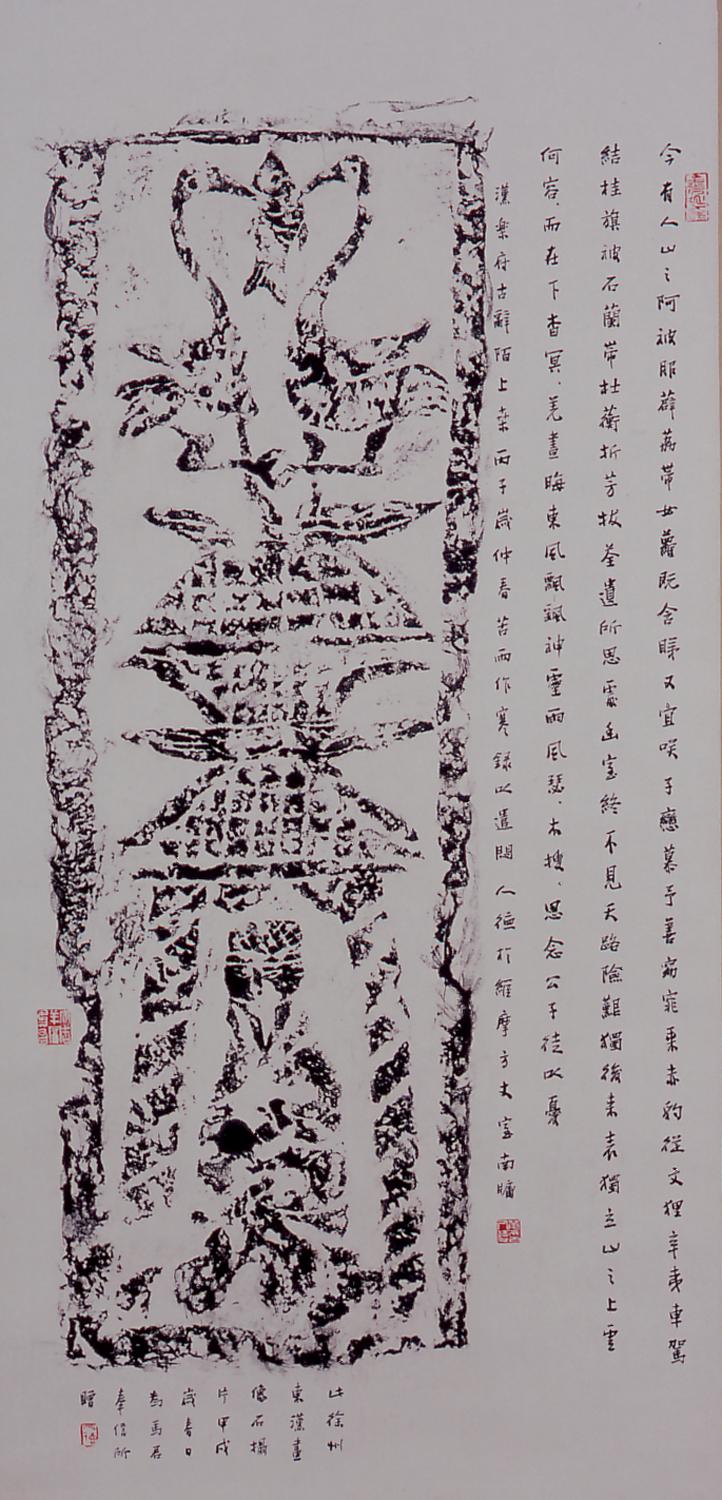 今有人山之阿被服薜荔帶女蘿既含睇又宜咲子戀慕予善窈窕乘赤豹從文狸辛夷車駕
結桂旗被石蘭帶杜蘅折芳拔荃遺所思處幽室終不見天路險艱獨後來表獨立山之上雲
何容、而在下杳冥、羌晝晦東風飄颻神靈雨風瑟、木搜、思念公子徒以憂
漢樂府古辭陌上桑丙子歲仲春苦雨作寒錄以遣悶人於維摩方丈室南牖
此徐州
東漢畫
像石搨
片甲戌
歲春日
為馬君
奉信所
贈